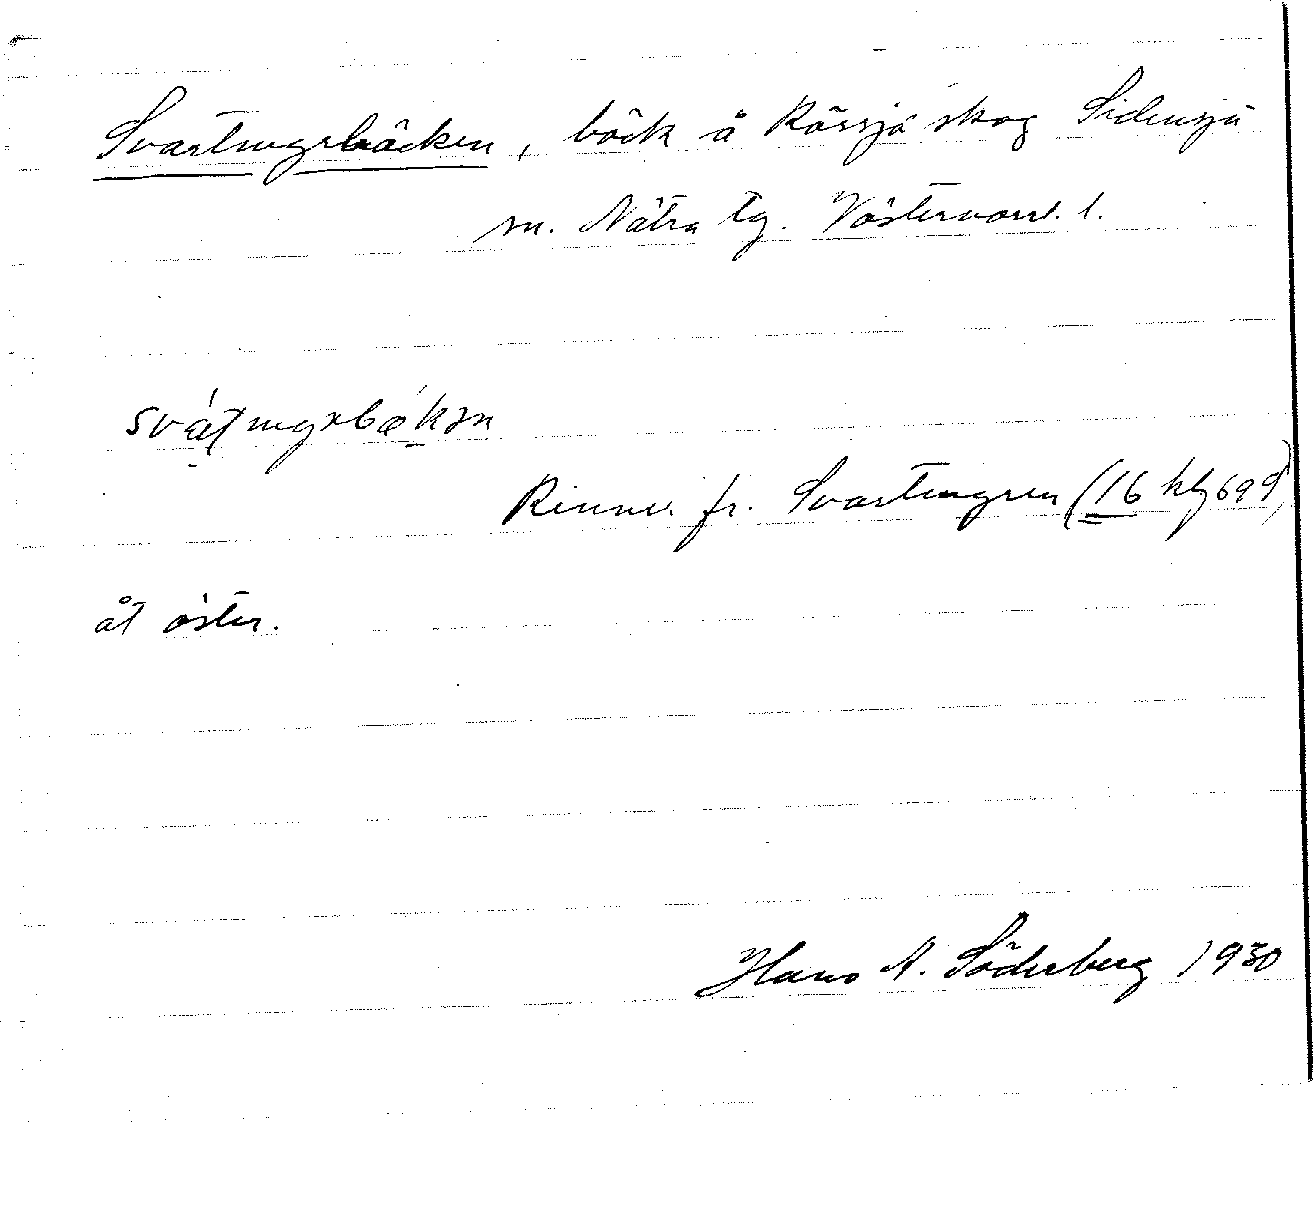 Svartungsbäcken, bäck å Rössjö skog Sidensjö
sn. Nätra tg. Västernorrl. l.
Rinner fr. Svartungen (16 hfg 699)
åt öster.
Hans A. Söderberg 1930